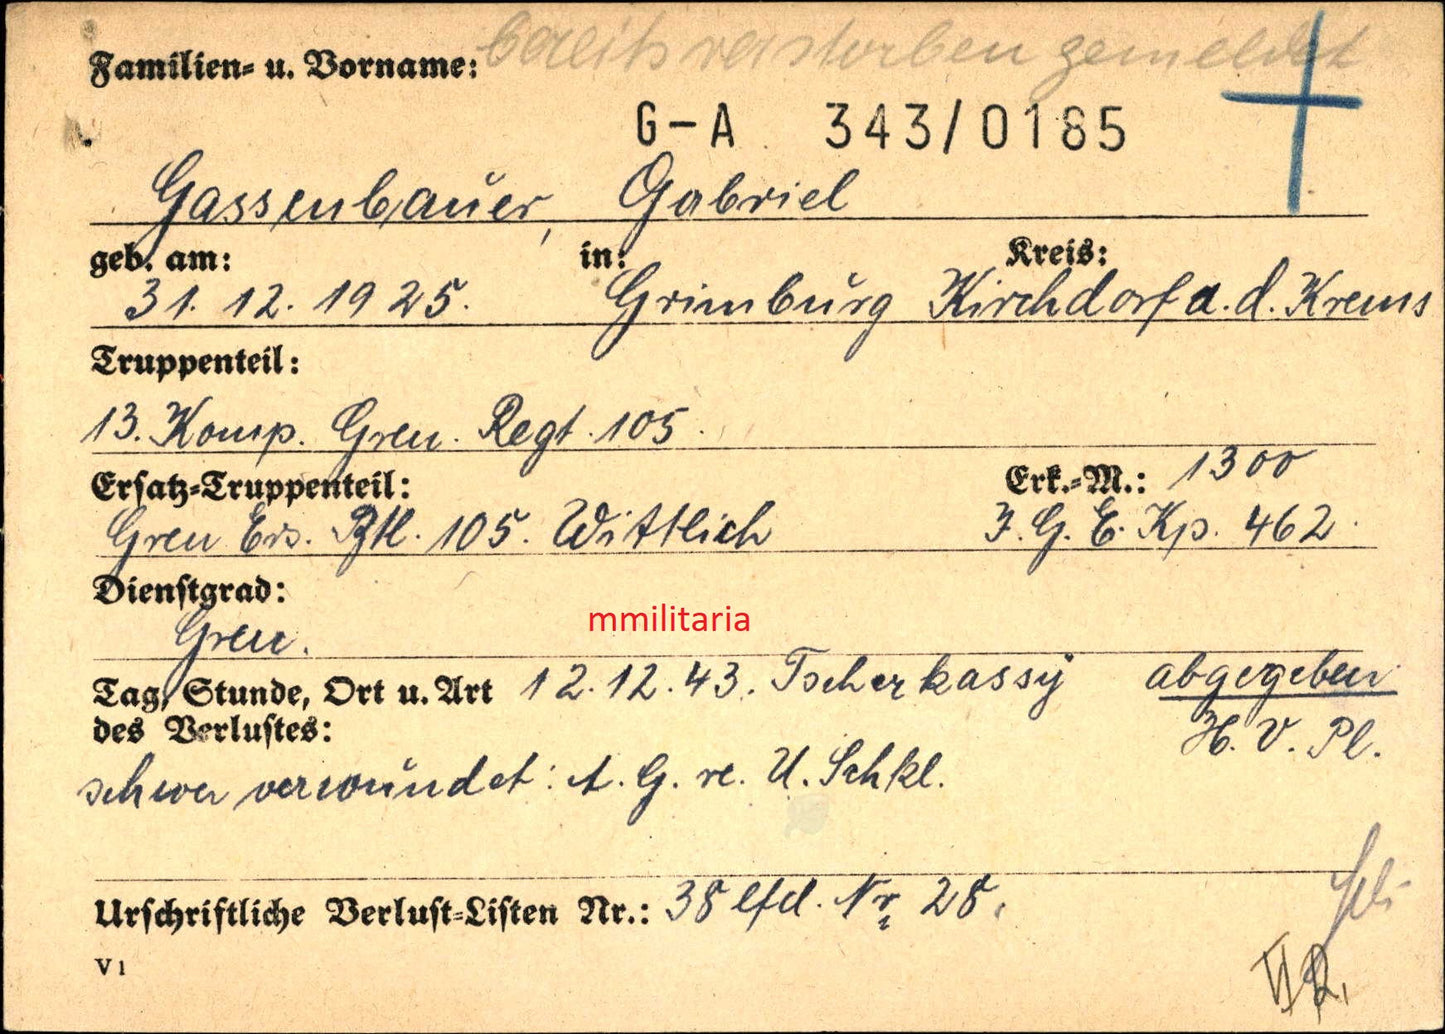 bereits verstorben gemeldet
Familien- u. Vorname:
G-A 343/0185
Gassenbauer, Gabriel
geb. am: in: Kreis:
31. 12. 1925. Grimburg Kirchdorf a. d. Krems
Truppenteil:
13. Komp. Gren. Regt. 105.
Ersatz-Truppenteil: Erk.-M.: 1300
Gren Ers. Btl. 105. Wittlich J. G. E. Kp. 462.
Dienstgrad:
Gren.
mmilitaria
Tag, Stunde, Ort u. Art 12.12.43. Tscherkassy abgegeben
des Verlustes: H. V. Pl.
schwer verwundet: A. G. re. U. Schkl.
Urschriftliche Verlust-Listen Nr.: 38 lfd. Nr. 28.
V 1